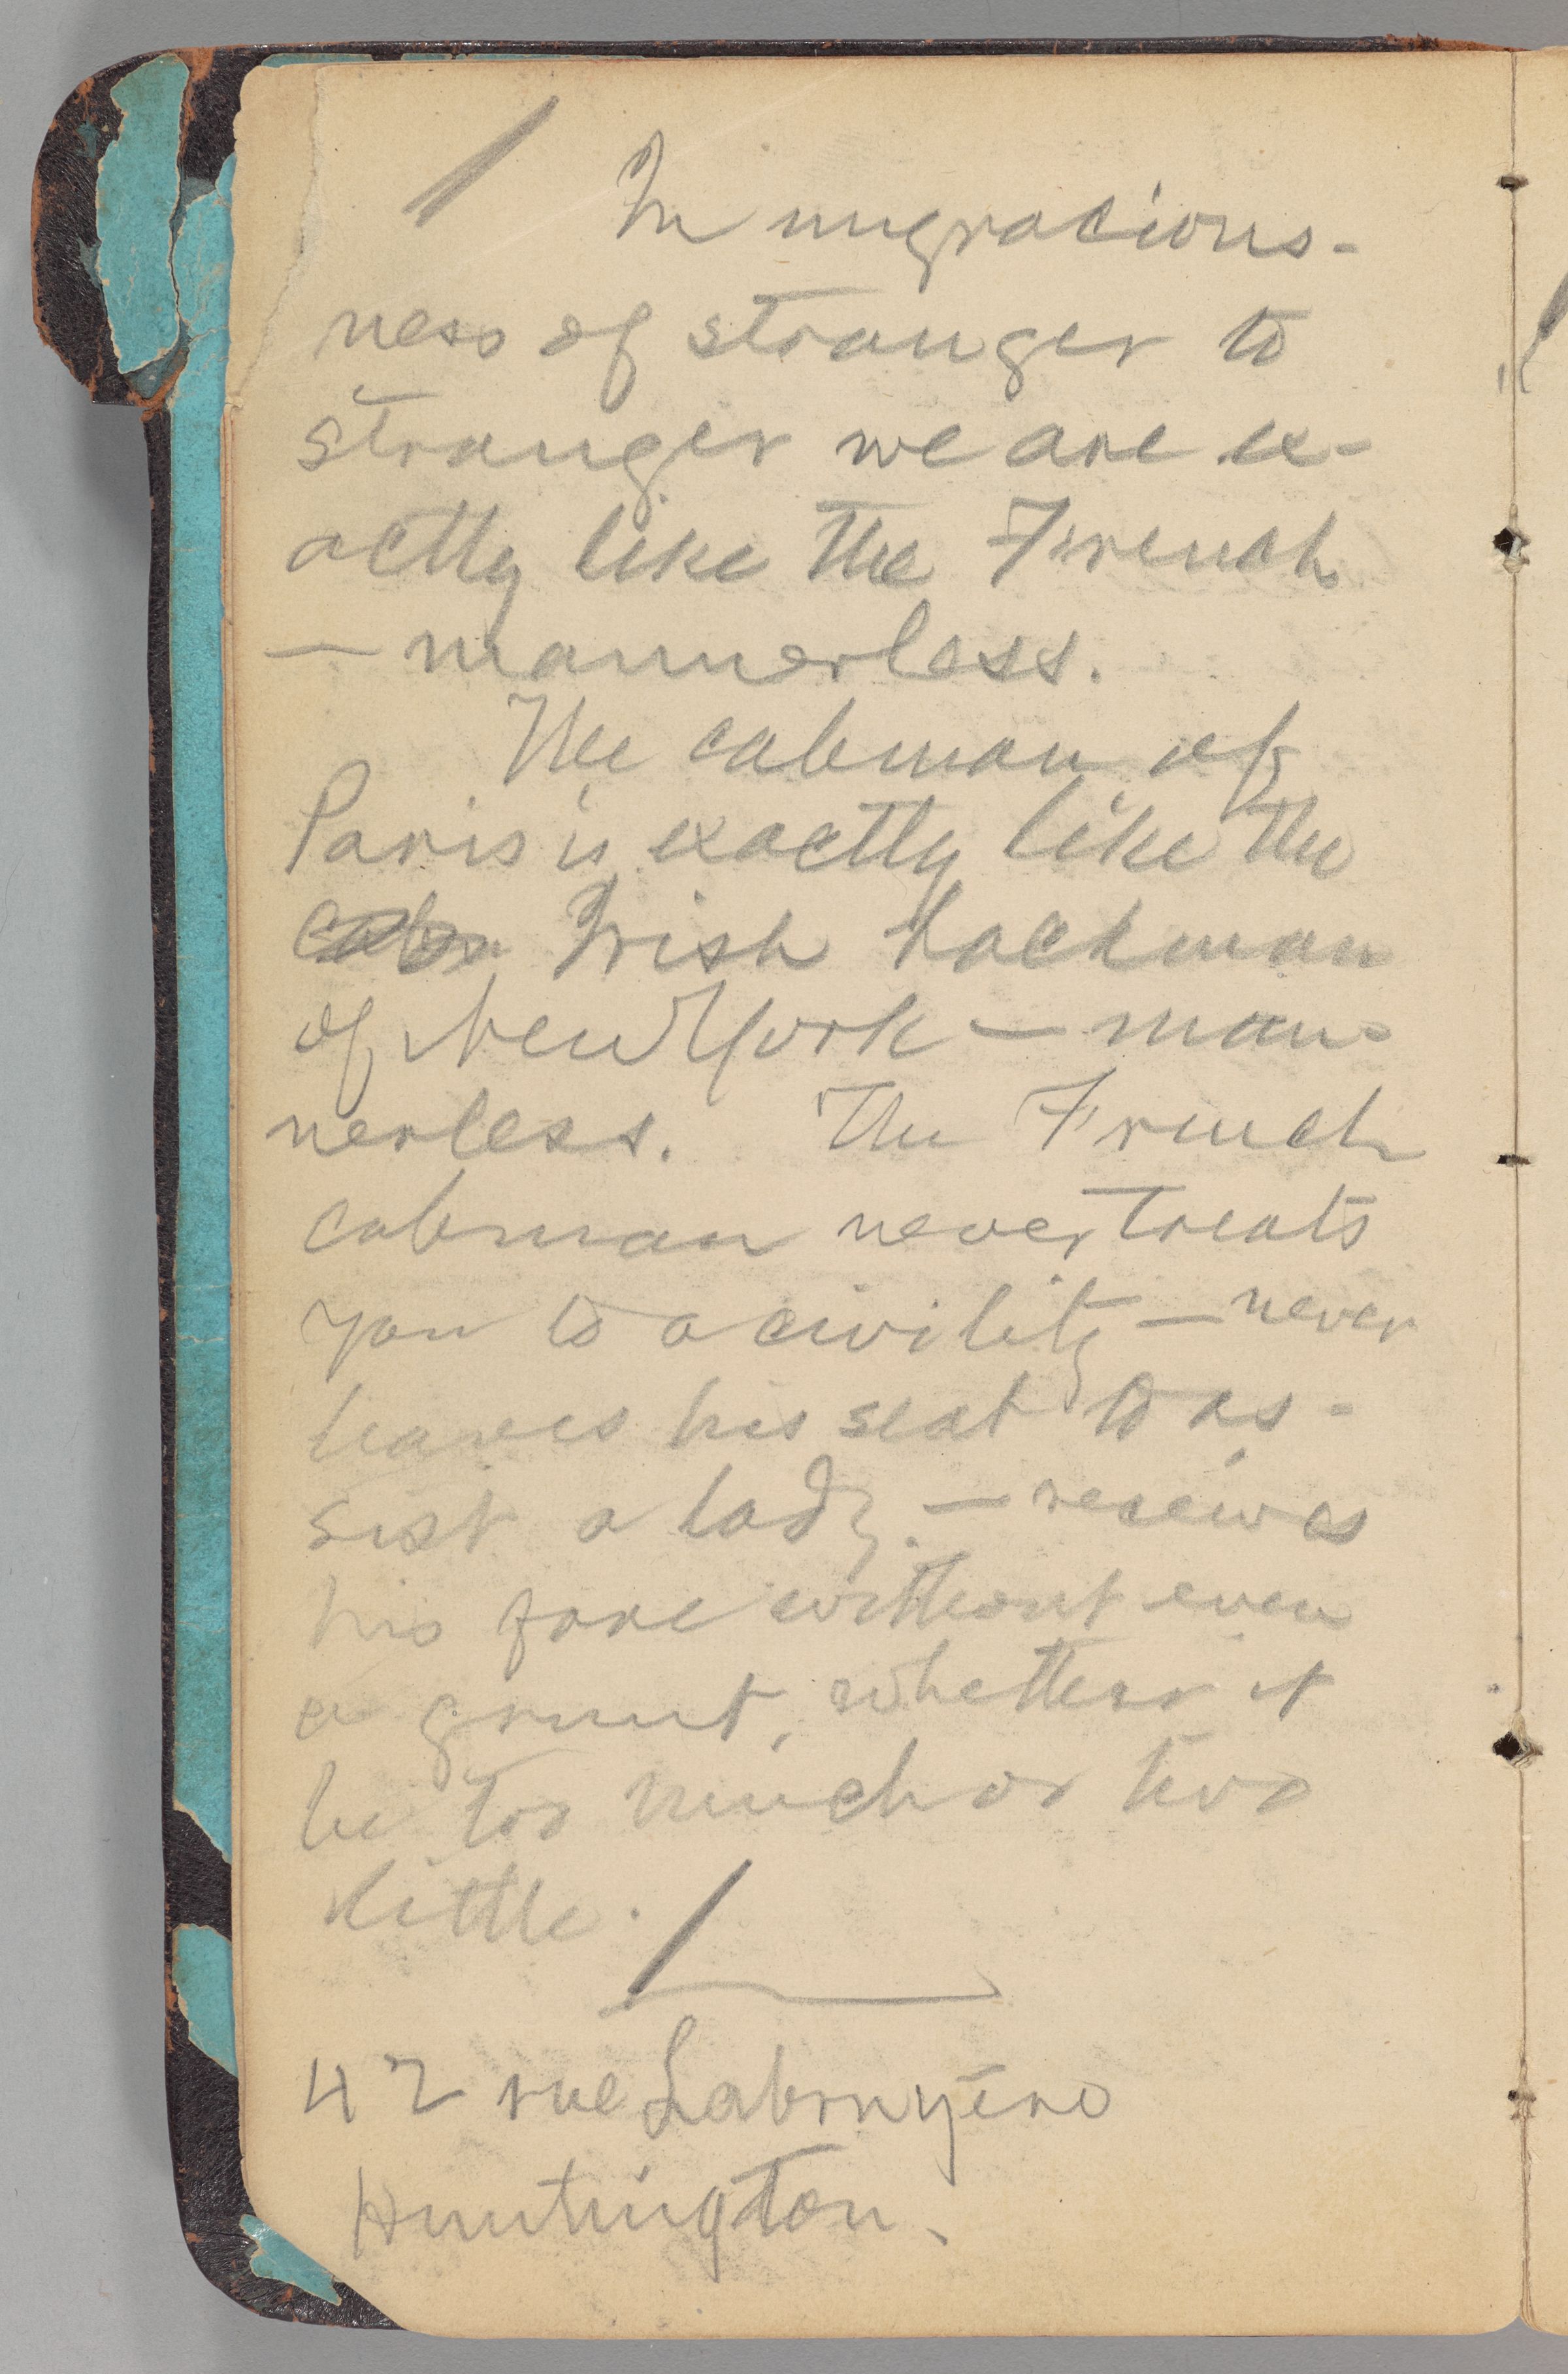 In ungracious-
ness of stranger to
stranger we are ex-
actly like the French
— mannerless.
The cabman of
Paris is exactly like the
Irish hackman
of New York — man-
nerless. The French
cabman never treats
you to a civility — never
leaves his seat to as-
sist a lady. — receives
his fare without even
a grunt, whether it
be too much or too
little.
42 rue Labruyère
Huntington.